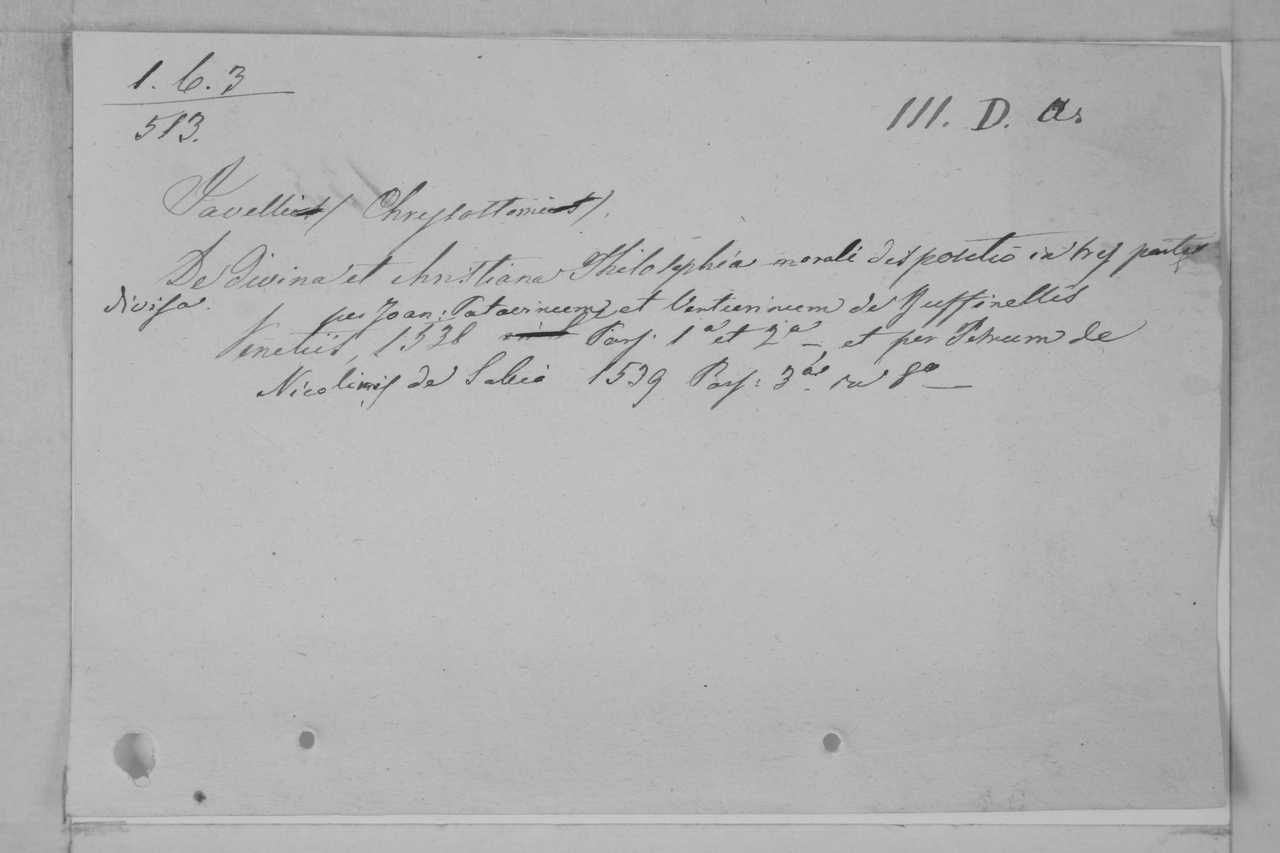 1. 6. 3
513.
III. D. a.
Javelli / Chrysostomi /.
De Divina et christiana Philosophia morali dispositio in tres partes
divisa. per Joan: Patavinum et Venturinum de Ruffinellis
Venetiis, 1538 Pars: 1a et 2a et per Petrum de
Nicolinis de Sabio 1539 Pars: 3a in 8o